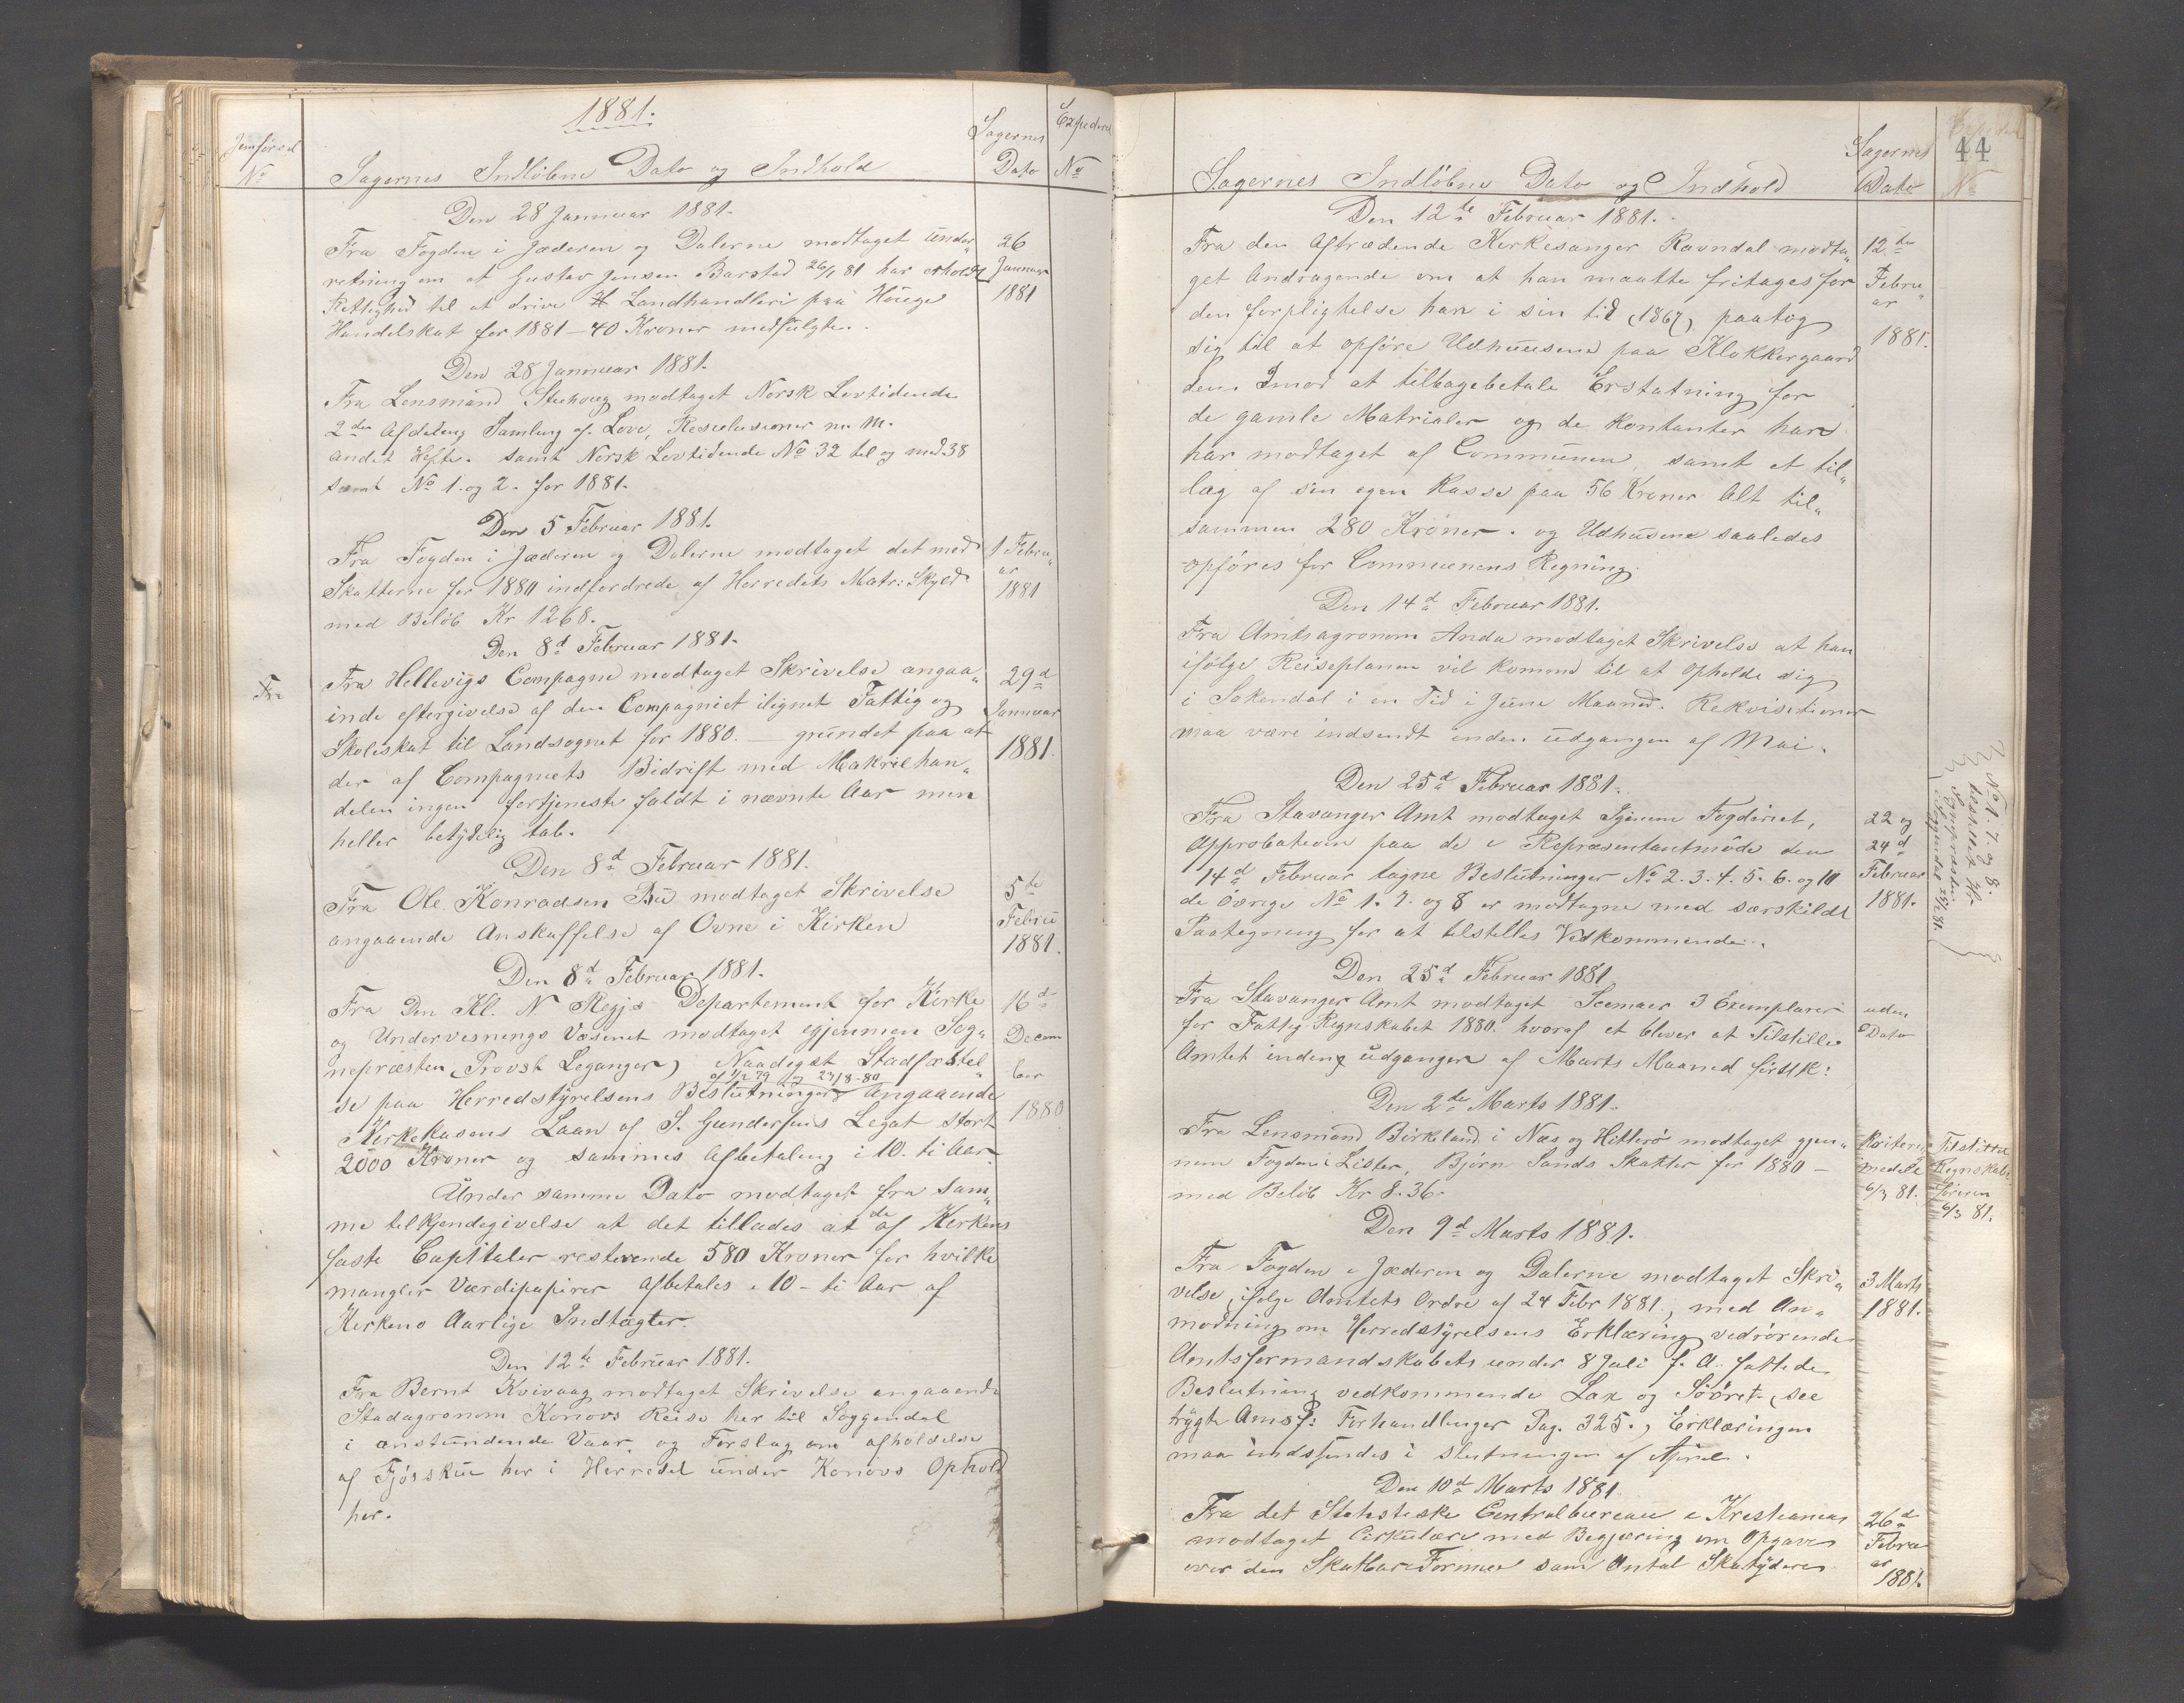 1881.
Jemförsel
No
Sagernes Indlöbne Dato og Indhold
Sagernes
Dato
Expederet
No
Den 28 Januuar 1881.
Fra Fogden i Jæderen og Dalerne modtaget under„
retning om at Gustav Jensen Barstad 26/1 81 har erholdt
Rettighed til at drive Landhandleri paa Houge
Handelskat for 1881 – 40 Kroner medfulgte.
26
Januuar
1881
Den 28 Januuar 1881.
Fra Lensmand modtaget Norsk Lovtidende
2den Afdeling Samling af Love, Resulusioner m. M.
andet Hefte. samt Norsk Lovtidende No 32 til og med 38
samt No 1. og 2. for 1881.
Den 5 Februar 1881.
Fra Fogden i Jæderen og Dalerne modtaget det med
Skatterne for 1880 indfordrede af Herredets Matr: Skyld
med Belöb Kr 1268.
1 Febru„
ar
1881
Den 8d Februar 1881.
Fra
Fra Hellevigs Compagne modtaget Skrivelse angaa„
inde eftergivelse af den Compagniet ilignet Fattig og
Skoleskat til Landsognet for 1880. – grundet paa at
der af Compagniets Bidrift med Makrelhan„
delen ingen fortjeneste faldt i nævnte Aar men
heller betydelig tab.
29d
Januuar
1881.
Den 8d Februar 1881.
Fra Ole Konradsen Bu modtaget Skrivelse
angaaende Anskaffelse af Ovne i Kirken
5te
Febru
1881.
Den 8d Februar 1881.
Fra Den Kl. N Regjs Departement for Kirke
og Undervisnings Væsenet modtaget gjennem Sog„
nepræsten (Provst Leganger) Naadigst Stadfæstel„
af 1/2 79 og 23/8-80
se paa Herredstyrelsens Beslutninger angaaende
Kirkekasens Laan af S. Gundersens Legat stort
2000 Kroner og sammes Afbetaling i 10. ti Aar.
16d
Decem
ber
1880
Under samme Dato modtaget fra Sam„
me tilkjendegivelse at det tillades at de af Kirkens
faste Capitaler resterende 580 Kroner for hvilke
mangler Værdipapirer afbetales i 10 - ti Aar af
Kirkens Aarlige Indtægter.
Den 12te Februar 1881.
Fra Bernt Kvivaag modtaget Skrivelse angaaende
Stadagronom Konovs Reise her til Soggendal
i anstundende Vaar. og Forslag om afholdelse
af Fjösskue her i Herredet under Konovs Ophold
her.
44
Sagernes Indlöbne Dato og Indhold
Sagernes
Dato
No
Den 12te Februar 1881.
Fra den Aftrædende Kirkesanger Ravndal modta„
get Andragende om at han maatte fritages for
den forpligtelse han i sin tid (1867) paatog
sig til at opföre Udhuusene paa Klokkergaard
den Imod at tilbagebetale Erstatning for
de gamle Matrialer og de Kontanter han
har modtaget af Communen, samt et til„
læg af sin egen Kasse paa 56 Kroner Alt til„
sammen 280 Kroner. og Udhusene saaledes
opföres for Communens Regning.
12te
Febru„
ar
1881.
Den 14d Februar 1881.
Fra Amtsagronom Anda modtaget Skrivelse at han
ifölge Reiseplanen vil komme til at opholde sig
i Sokendal i en Tid i Juni Maaned. Rekvisitioner
maa være indsendt inden udgangen af Mai.
Den 25d Februar 1881.
Fra Stavanger Amt modtaget Igjenem Fogderiet,
Approbation paa de i Repræsentantmöde den
14d Februar tagne Beslutninger No 2. 3. 4. 5. 6. og 10
de övrige No 1. 7. og 8 er modtagne med særskildt
Paategning for at tilstilles Vedkommende.
22 og
24d
Februar
1881.
No 1. 7. og 8.
tilstillet Hr
Sognepræsten
i Soggendal 28/2 81.
Den 25d Februar 1881
Fra Stavanger Amt modtaget Scemaer 3 Exemplarer
for Fattig Regnskabet 1880. hvoraf et bliver at Tilstille
Amtet inden udgangen af Marts Maaned förstk:
uden
Dato
Den 2de Marts 1881.
Fra Lensmand Birkeland i Næs og Hitterö modtaget gjen„
nem Fogden i Lister, Björn Sands Skatter for 1880 –
med Belöb Kr 8.36.
Kviterin
medelt
6/3 81.
Tilstillet
Regnskabs
föreren
6/3 81.
Den 9d Marts 1881.
Fra Fogden i Jæderen og Dalerne modtaget Skri„
velse ifölge Amtets Ordre af 24 Febr 1881, med An„
modning om Herredstyrelsens Erklæring vedrörende
Amtsformandskabets under 8 Juli f. A. fattede
Beslutning vedkommende Lax og Söörret (see
trygte Amsf: Forhandlinger Pag. 325.) Erklæringen
maa indsendes i slutningen af April.
3 Marts
1881.
Den 10d Marts 1881
Fra det Statestiske Centralbureau i Kristiania
modtaget Cirkulære med Begjæring om Opgave
over den Skatbare Formue samt Antal Skatydere
26d
Febru
ar
1881.